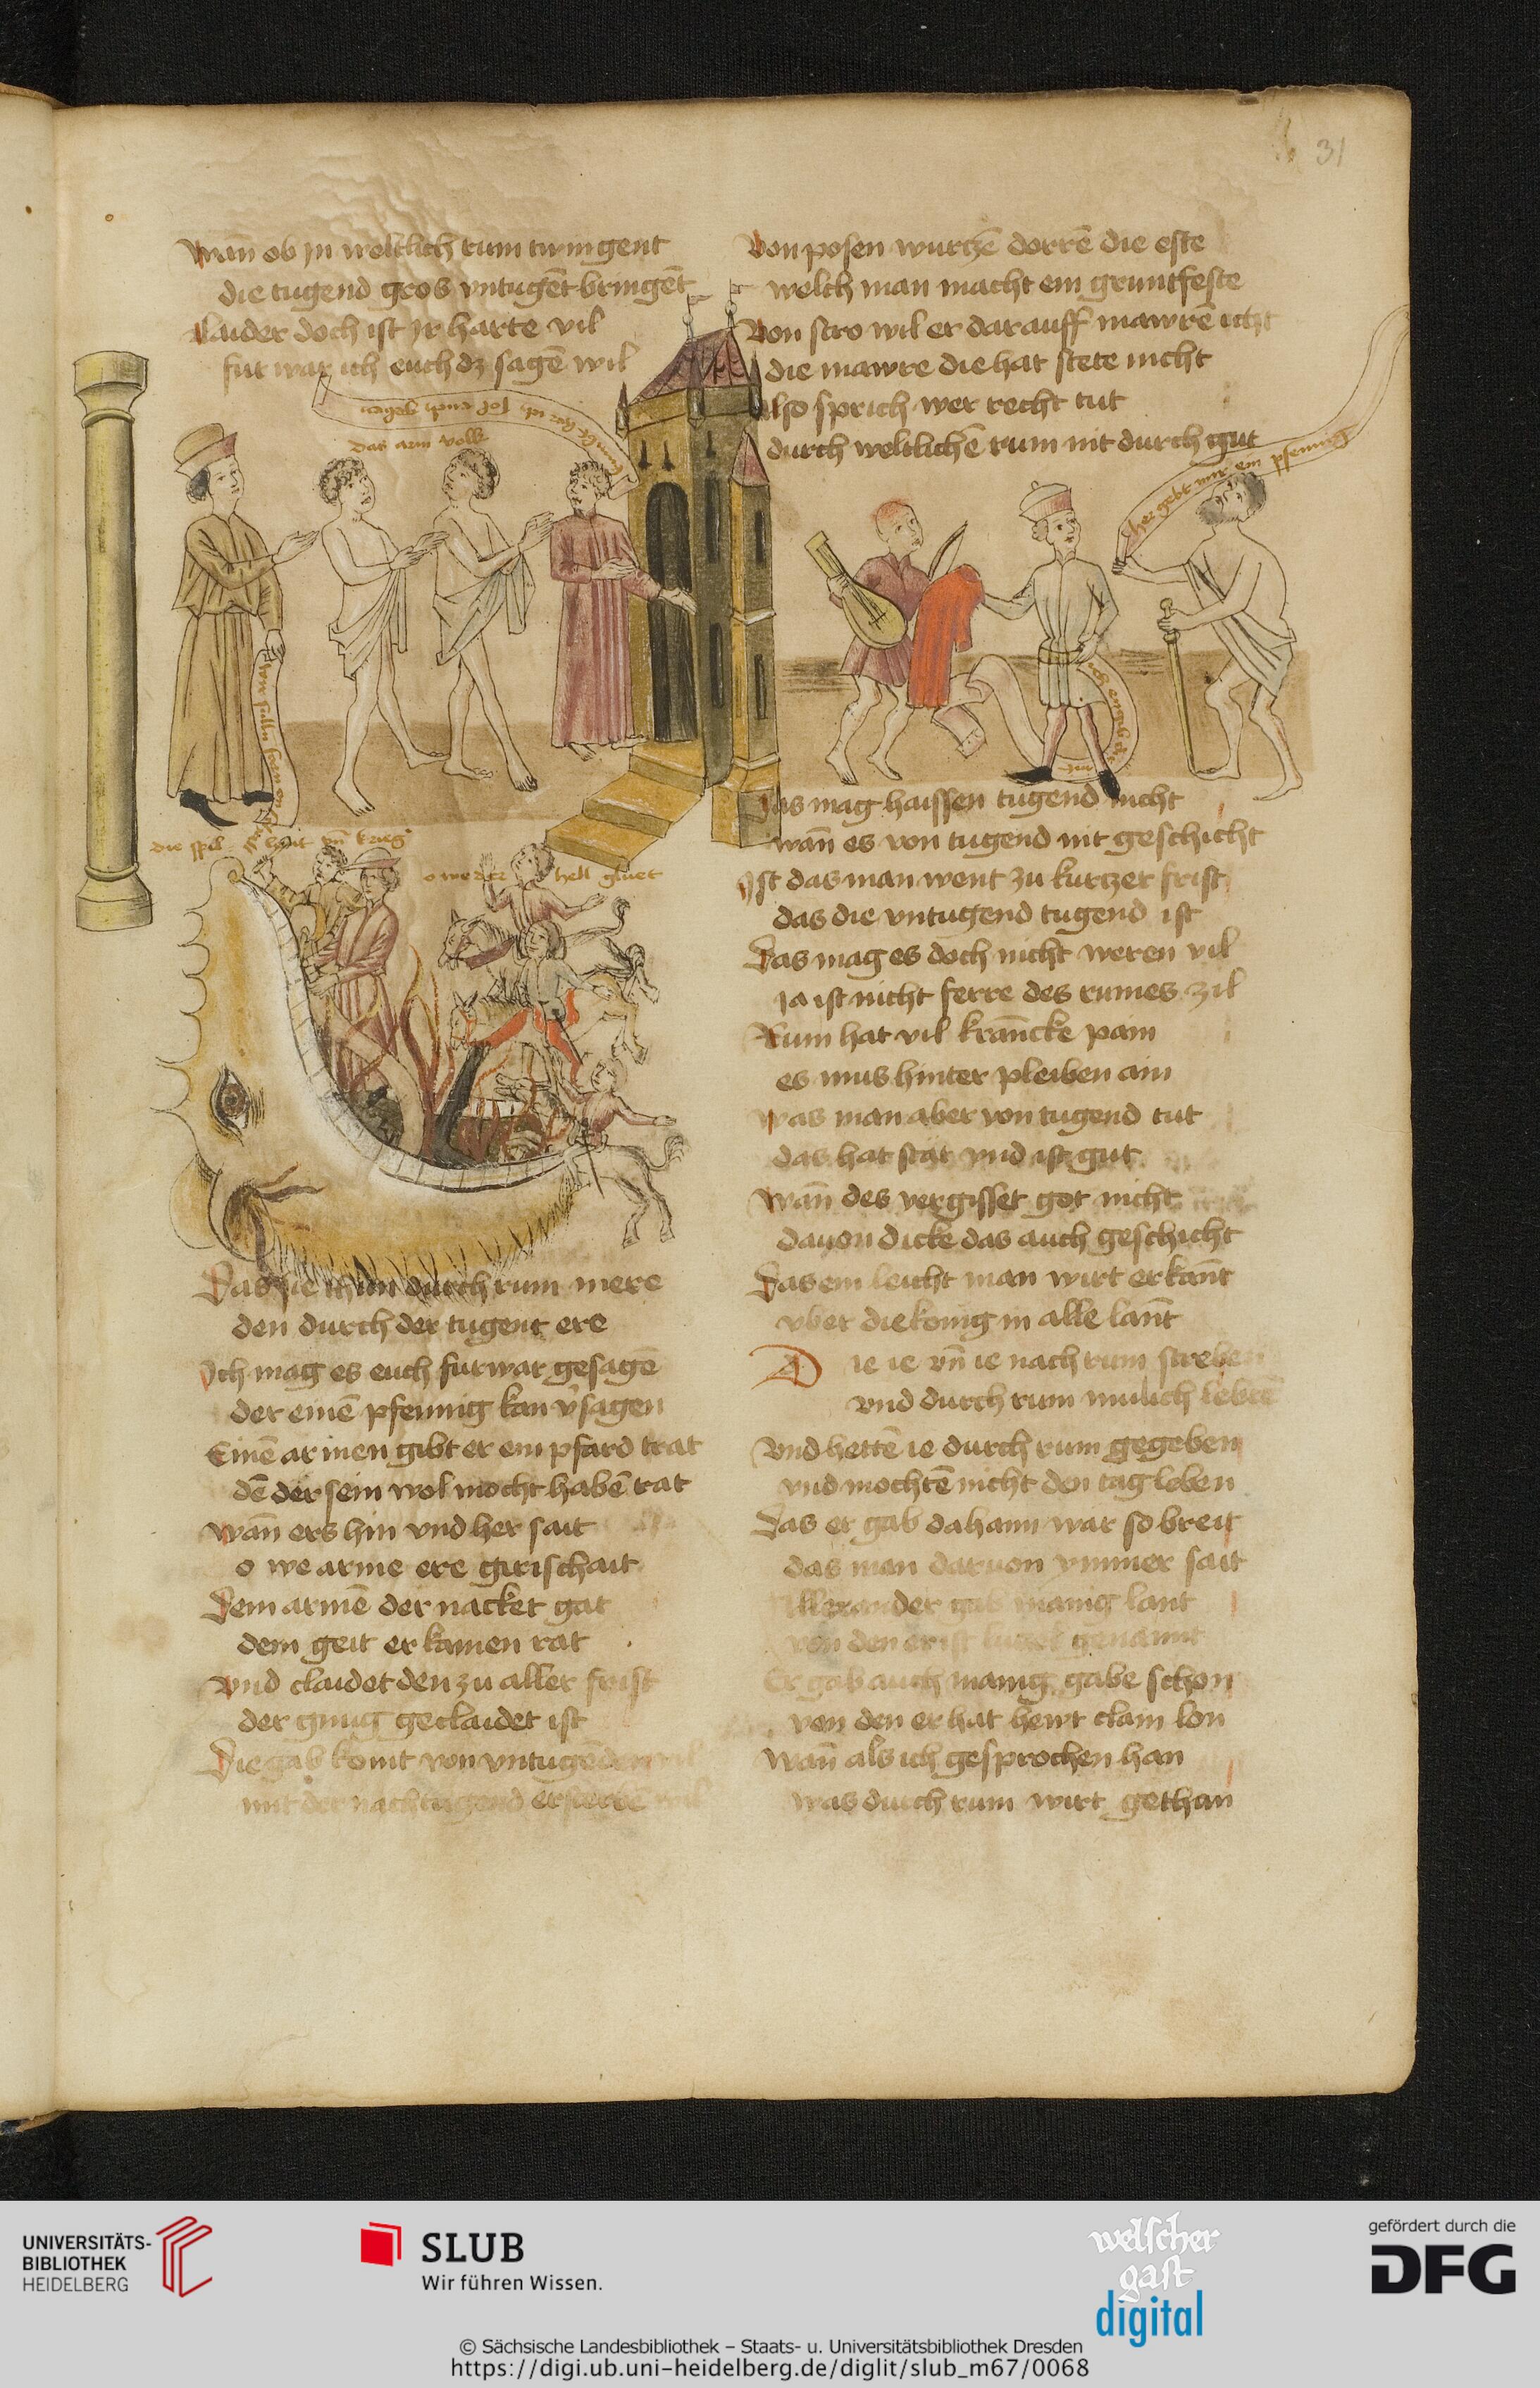 31
Wan̄ ob jn weltlich rum twingent
die tugend gros vntugēt bringēt
Laider doch ist jr harte vil
fur war ich euch dz sagē wil
das arm volk
die spil leut vn̄ krieg
o we der hell gluet
Das sie thun durch rum mere
den durch der tugent ere
Ich mag es euch furwar gesagē
der einē pfennig kan v̄sagen
Einē armen gibt er ein pfard trat
dē der sein wol mocht habē rat
Wan̄ ers hin vnd her sait
o we arme ere girischait
Dem armē der nacket gat
dem geit er kainen rat
Vnd claidet den zu aller frist
der gnug geclaidet ist
Die gab komt von vntugenden
mit der nach tugend
Von posen wurtzē dorrē die este
welch man macht ein gruntfeste
Von stro wil er darauff mawrē icht
die mawre die hat stete nicht
Also sprich wer recht tut
durch weltlichē rum nit durch gut
her gebt mir ein pfennig
Das mag haissen tugend nicht
wan̄ es von tugend nit geschicht
Ist das man went zu kurtzer frist
das die vntugend tugend ist
Das mag es doch nicht weren vil
ja ist nicht ferre des rumes zil
Rum hat vil kran̄cke pain
es mus hinter pleiben ain
Was man aber von tugend tut
das hat stat vnd ist gut
Wan̄ des vergisset got nicht
dauon dicke das auch geschicht
Das ein leicht man wirt erkan̄t
vber die konig in alle lan̄t
Die ie vn̄ ie nach rum streben
vnd durch rum mulich lebtē
Vnd hettē ie durch rum gegeben
vnd mochtē nicht den tag leben
Das er gab dahann war so breit
das man daruon ymmer sait
Allexander gab manig lant
von den er ist genannt
Er gab auch manig gabe schon
von den er hat hewt clain lon
Wan̄ als ich gesprochen han
was durch rum wirt gethan
UNIVERSITÄTS-
BIBLIOTHEK
HEIDELBERG
SLUB
Wir führen Wissen.
welscher
gast
digital
gefördert durch die
DFG
© Sächsische Landesbibliothek – Staats- u. Universitätsbibliothek Dresden
https://digi.ub.uni-heidelberg.de/diglit/slub_m67/0068